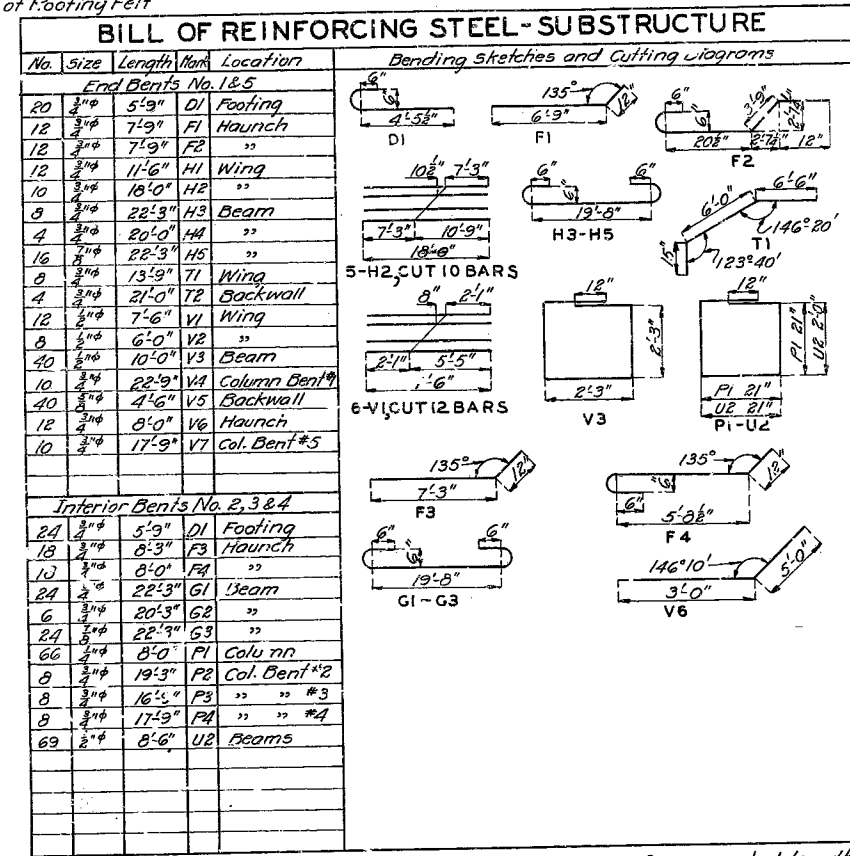 of Footing Felt
BILL OF REINFORCING STEEL-SUBSTRUCTURE
No. Size Length Mark Location
End Bents No. 1&5
20 3/4"φ 5'-9" D1 Footing
12 3/4"φ 7'-9" F1 Haunch
12 3/4"φ 7'-9" F2 ”
12 3/4"φ 11'-6" H1 Wing
10 3/4"φ 18'-0" H2 ”
8 3/4"φ 22'-3" H3 Beam
4 3/4"φ 20'-0" H4 ”
16 7/8"φ 22'-3" H5 ”
8 3/4"φ 13'-9" T1 Wing
4 3/4"φ 21'-0" T2 Backwall
12 1/2"φ 7'-6" V1 Wing
8 1/2"φ 6'-0" V2 ”
40 1/2"φ 10'-0" V3 Beam
10 3/4"φ 22'-9" V4 Column Bent#1
40 5/8"φ 4'-6" V5 Backwall
12 3/4"φ 8'-0" V6 Haunch
10 3/4"φ 17'-9" V7 Col. Bent #5
Interior Bents No. 2, 3 & 4
24 3/4"φ 5'-9" D1 Footing
18 3/4"φ 8'-3" F3 Haunch
3/4"φ 8'-0" F4 ”
24 22'-3" G1 Beam
6 3/4"φ 20'-3" G2 ”
24 7/8"φ 22'-3" G3 ”
66 8'-0" P1 Column
8 3/4"φ 19'-3" P2 Col. Bent #2
8 3/4"φ P3 ” ” #3
8 3/4"φ 17'-9" P4 ” ” #4
69 1/2"φ 8'-6" U2 Beams
Bending Sketches and Cutting Diagrams
6" 6" 4'-5½"
D1
135° 12" 6'-9"
F1
6" 6" 3'-9" 2'-7¼"
20½" 2'-7¼" 12"
F2
10½" 7'-3"
7'-3" 10'-9"
18'-0"
5-H2, CUT 10 BARS
6" 6" 6"
19'-8"
H3-H5
6'-0" 6'-6"
15" 146°20'
T1
123°40'
8" 2'-1"
2'-1" 5'-5"
6-V1, CUT 12 BARS
12"
2'-3"
2'-3"
V3
12"
P1 21" U2 2'-0"
P1 21"
U2 21"
P1-U2
135° 12"
7'-3"
F3
135° 12"
6" 6"
5'-8½"
F4
6" 6" 6"
19'-8"
G1-G3
146°10' 5'-0"
3'-0"
V6